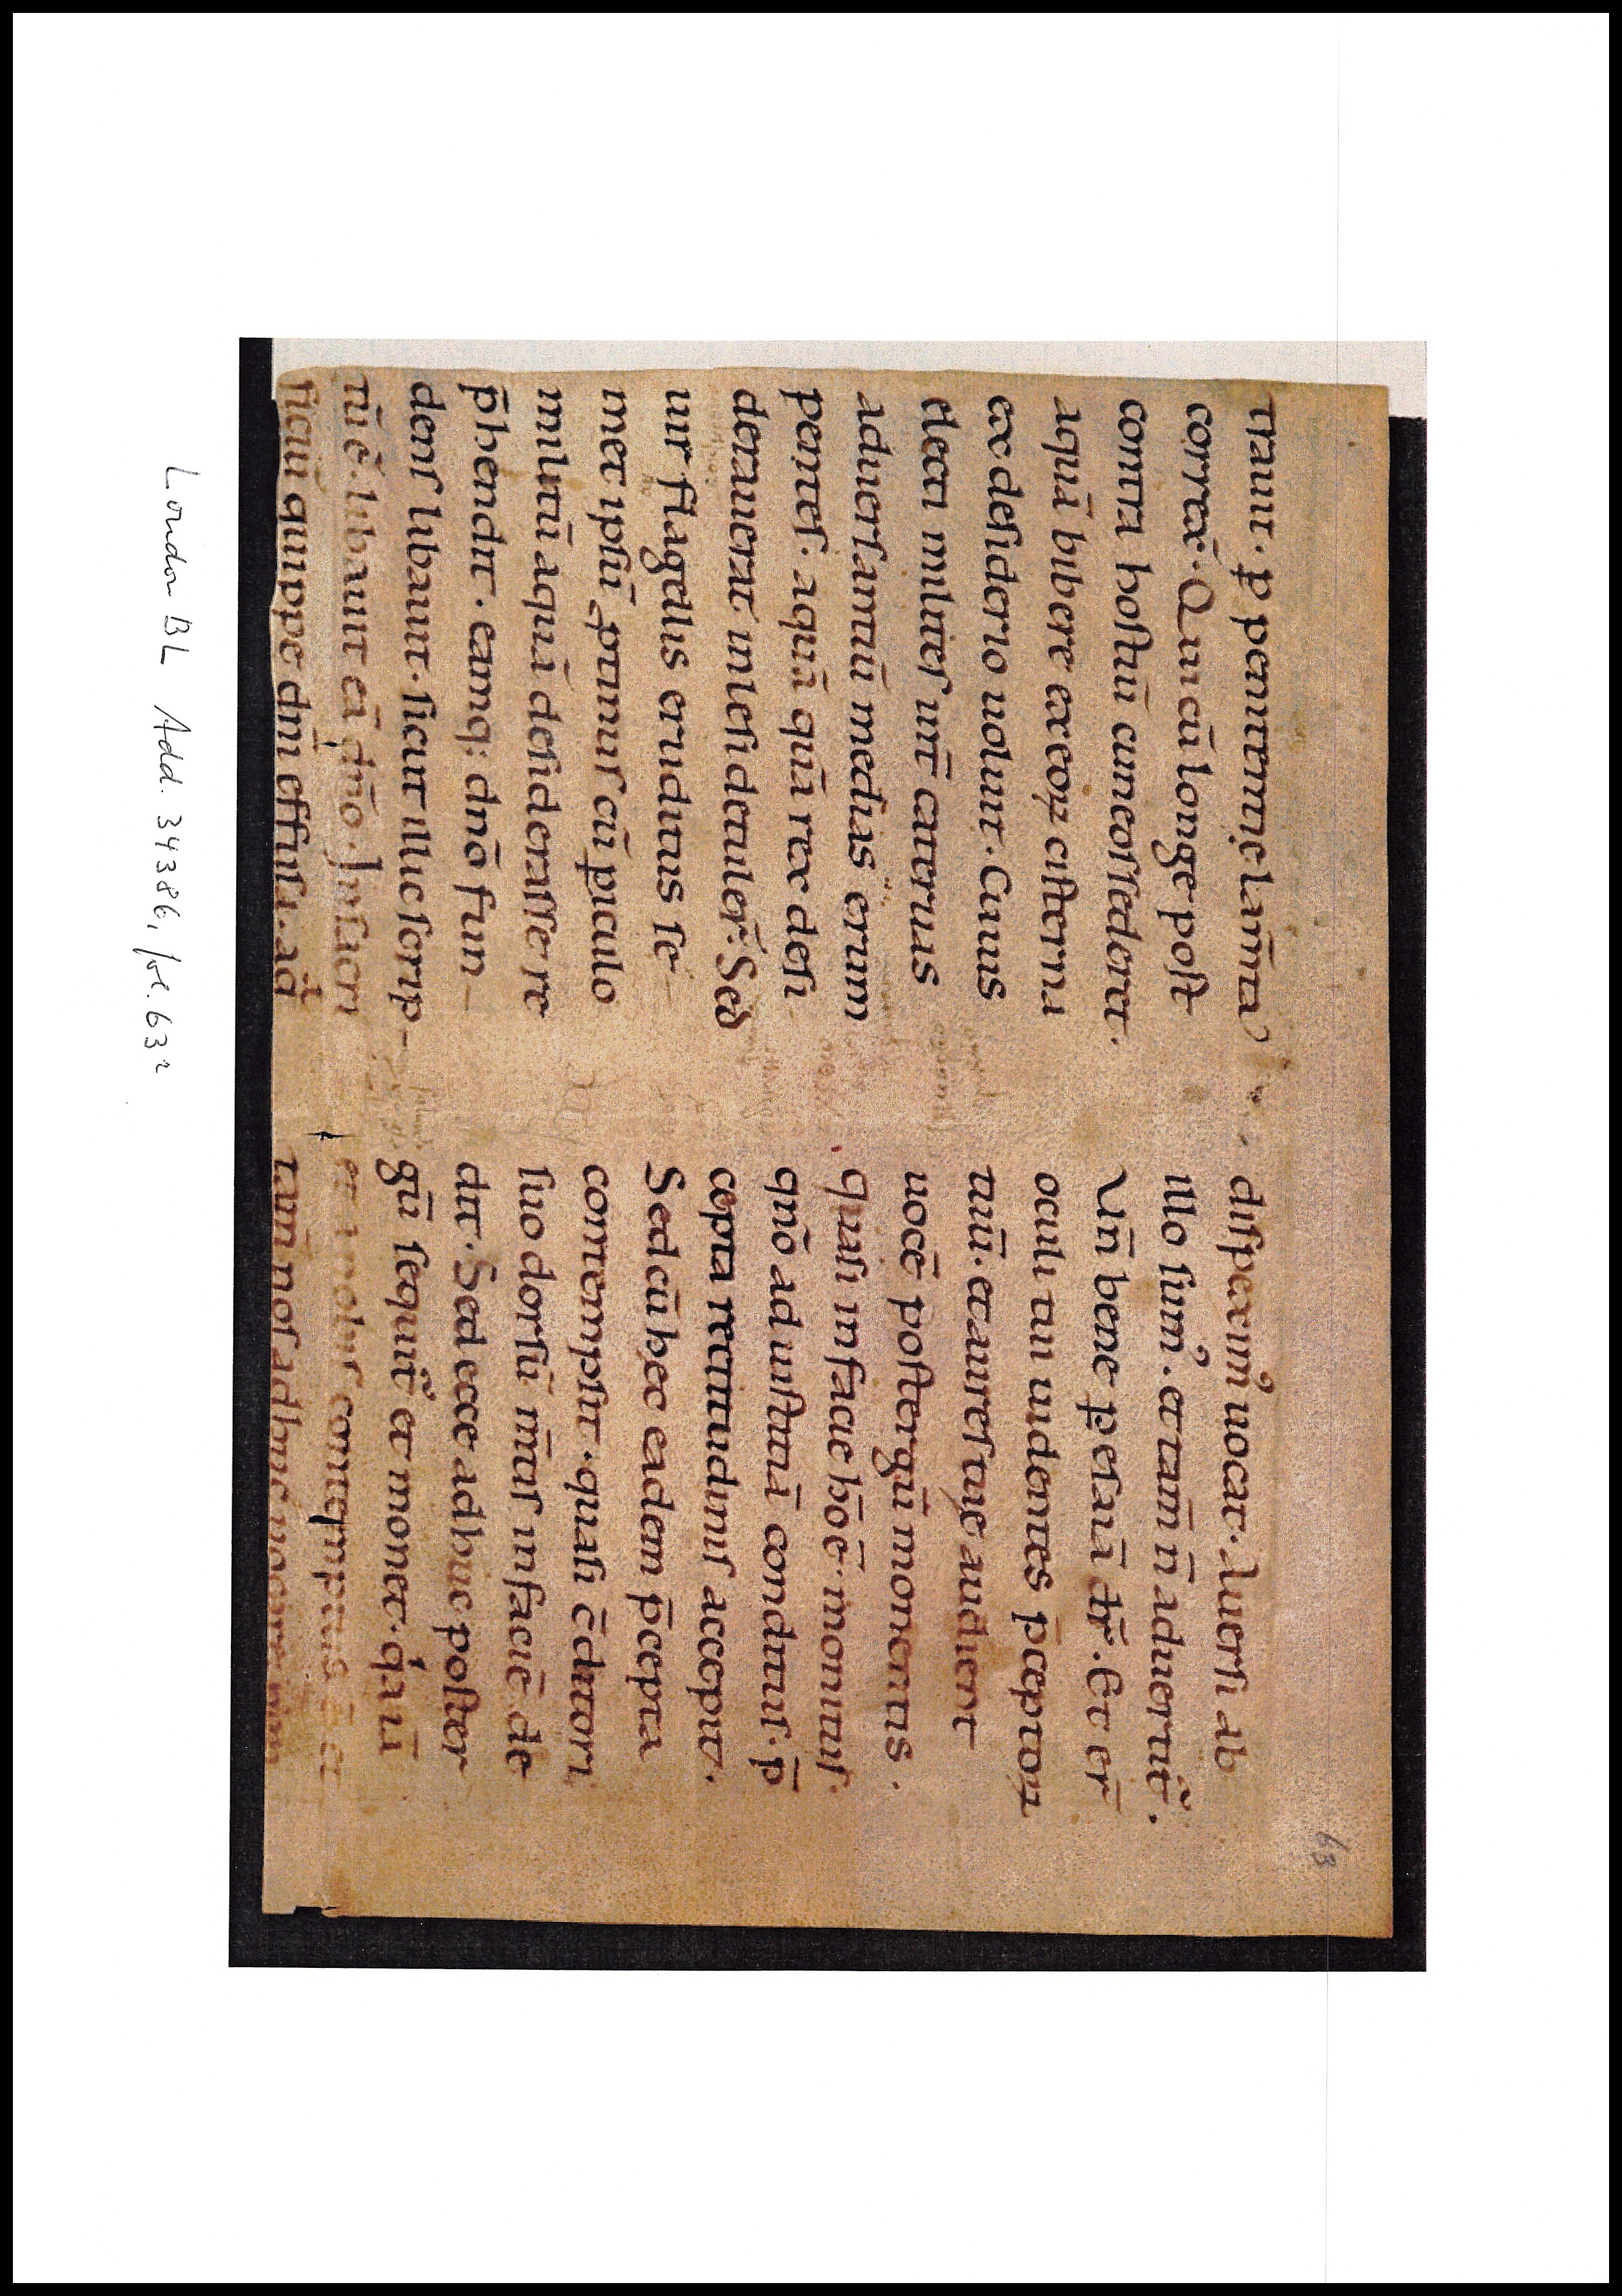 trauit. ꝑ penitentię lam̄ta
correx̄. Qui cū longe post
contra hostiū cuneos sederet.
aquā bibere ex eoꝝ cisterna
ex desiderio uoluit. Cuius
electi milites int̄ cateruas
aduersantiū medias erum
pentes. aquā quā rex desi
derauerat inlesi detuler̄. Sed
uir flagellis eruditus se
met ipsū ꝓtinus cū ꝑiculo
militū aquā desiderasse re
p̄hendit. eamq; dn̄o fun
dens libauit. sicut illic scrip
tū ē. libauit eā dn̄o. In sacri
ficiū quippe dn̄i effusa aq̈
dispeximꝰ uocat. Auersi ab
illo sumꝰ. et tam̄ n̄ aduertit̄.
Vn̄ bene ꝑ esaiā dr̄. Et er̄
oculi tui uidentes p̄ceptoꝝ
tuū. et aures tuę audient
uocē post tergū monentis.
Quasi in facie hōē monitus
qn̄o ad iustitiā conditus. p̄
cepta rectitudinis accepit.
Sed cū hęc eadem p̄cepta
contempsit. quasi c̄ditori
suo dorsū m̄tis in faciē de
dit. Sed ecce adhuc post ter
gū sequit̄ et monet. q̇ a ū
et uobis contemptus ē et
tam̄ nos adhuc uocare
63
London BL Add. 34386, fol. 63r